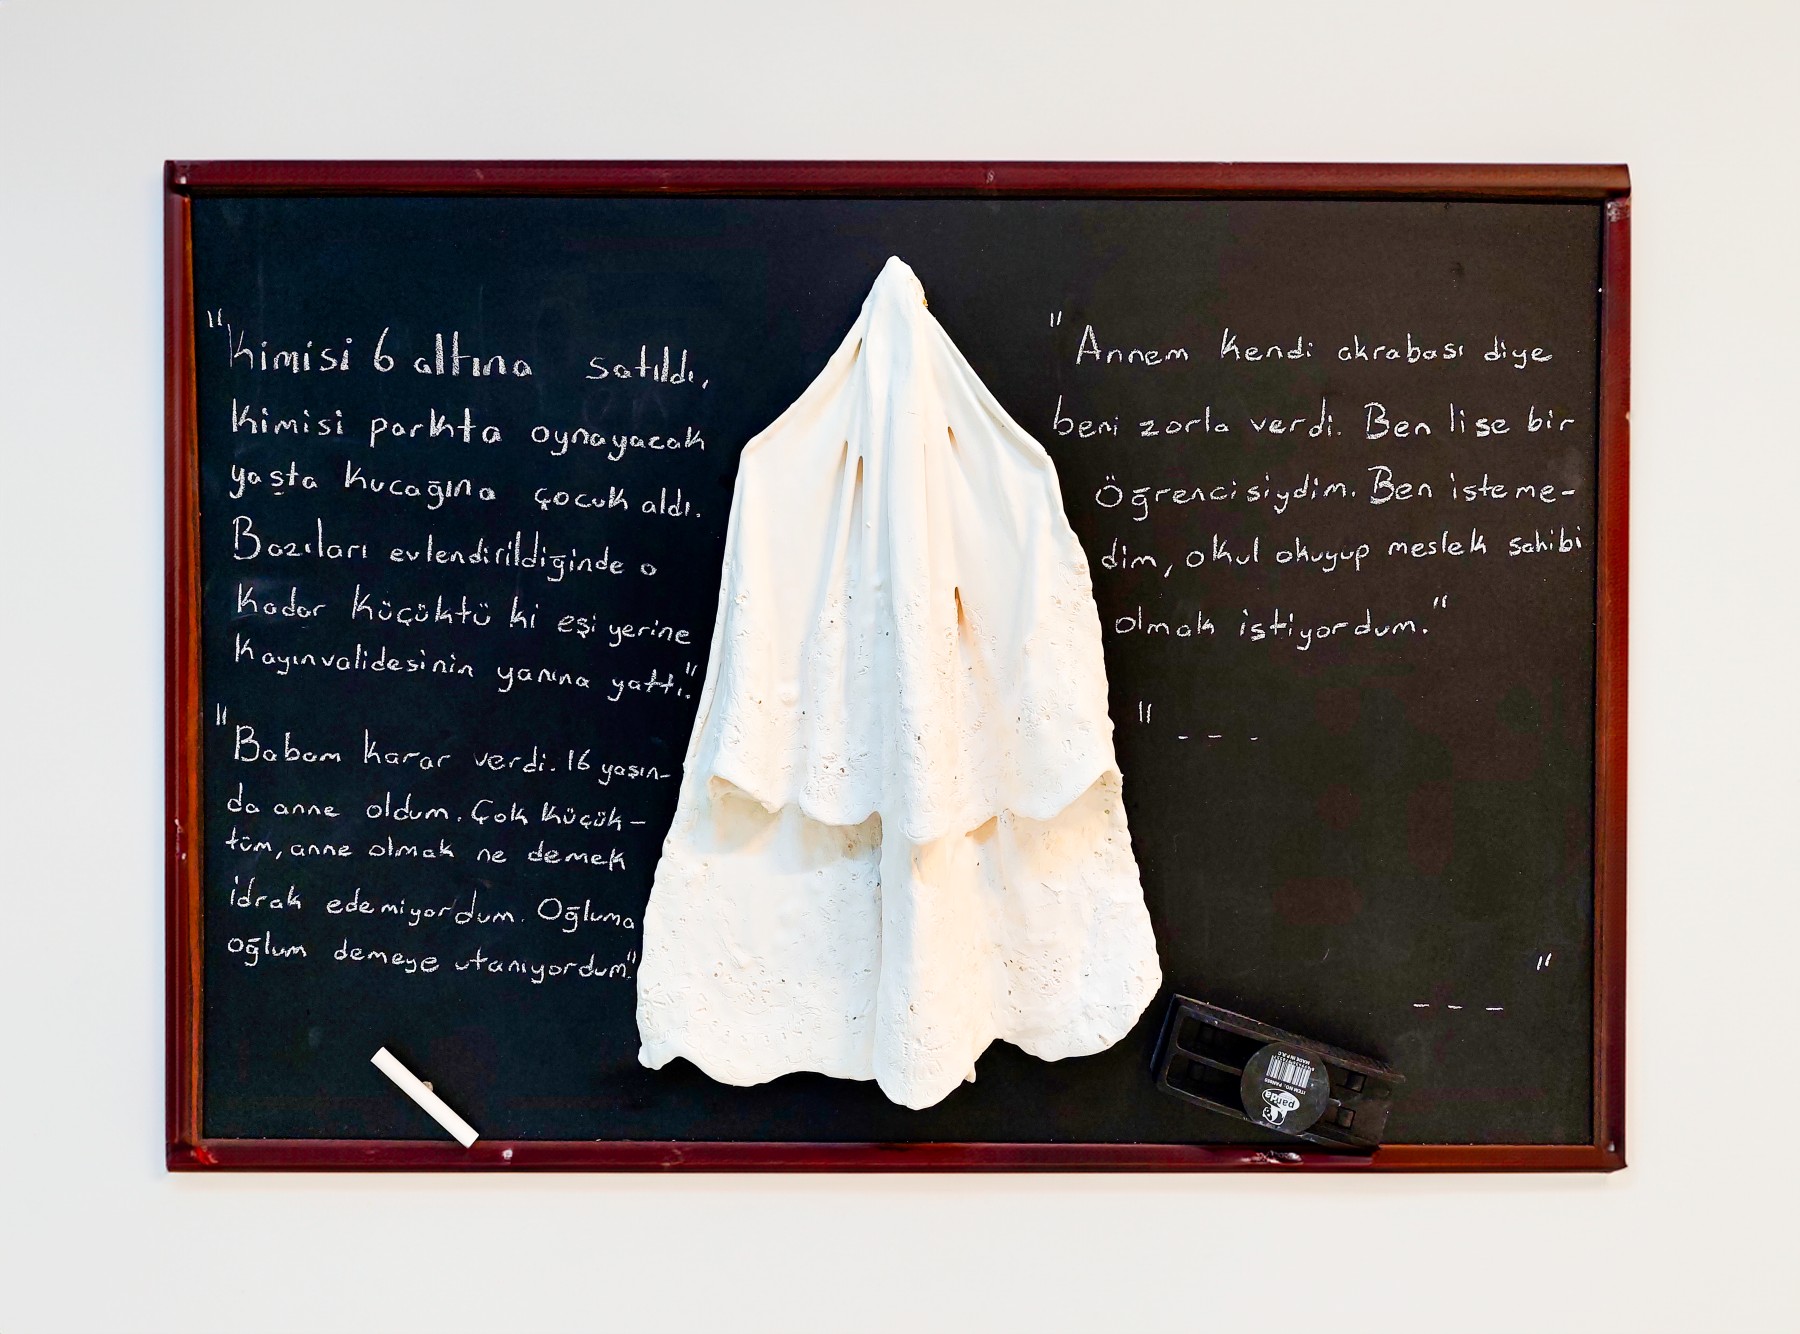 "Kimisi 6 altına satıldı,
kimisi parkta oynayacak
yaşta kucağına çocuk aldı.
Bazıları evlendirildiğinde o
kadar küçüktü ki eşi yerine
kayınvalidesinin yanına yattı."
"Babam karar verdi. 16 yaşın-
da anne oldum. Çok küçük-
tüm, anne olmak ne demek
idrak edemiyordum. Oğluma
oğlum demeye utanıyordum."
"Annem kendi akrabası diye
beni zorla verdi. Ben lise bir
Öğrencisiydim. Ben isteme-
dim, okul okuyup meslek sahibi
olmak istiyordum."
" _ _ _
_ _ _ "
panda
ITEM NO.
MADE IN P.R.C